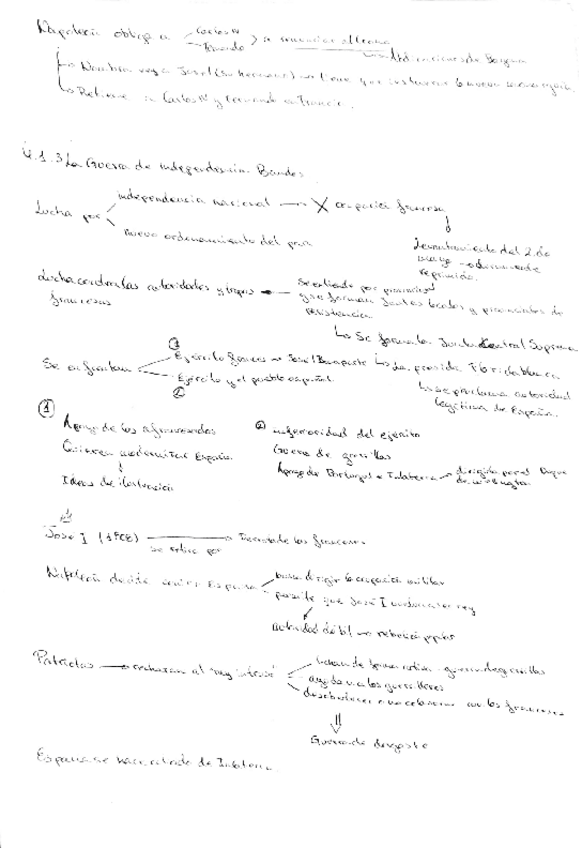 Napoleón obliga a Carlos IV
Fernando
a renunciar al trono
Abdicaciones de Bayona
Nombra rey a José (su hermano)
Retiene a Carlos IV y Fernando en Francia.
4.1.3 La Guerra de Independencia. Bandos
Lucha por
independencia nacional → X ocupación francesa
nuevo ordenamiento del país
Levantamiento del 2 de
mayo → duramente
reprimido.
Lucha contra las autoridades y tropas
francesas
Se extiende por provincias
y se forman Juntas locales y provinciales de
resistencia
Se forma la Junta Central Suprema
La preside Floridablanca
Se proclama autoridad
legítima de España.
Se enfrentan
① Ejército francés → José I Bonaparte
Ejército y el pueblo español.
②
①
Apoyo de los afrancesados
Quieren modernizar España.
Ideas de ilustración
② inferioridad del ejército
Guerra de guerrillas
Apoyo de Portugal e Inglaterra → dirigida por el Duque
de Wellington
José I (1808) → Derrota de los franceses
se retira por
Napoleón decide venir a España
busca dirigir la ocupación militar
permite que José I vuelva a ser rey
autoridad débil → rebelión popular
Patriotas → rechazan al rey intruso
luchan de forma activa - guerra de guerrillas
ayudan a los guerrilleros
desobedecen o no colaboran con los franceses
Guerra de desgaste
España se hace aliada de Inglaterra.